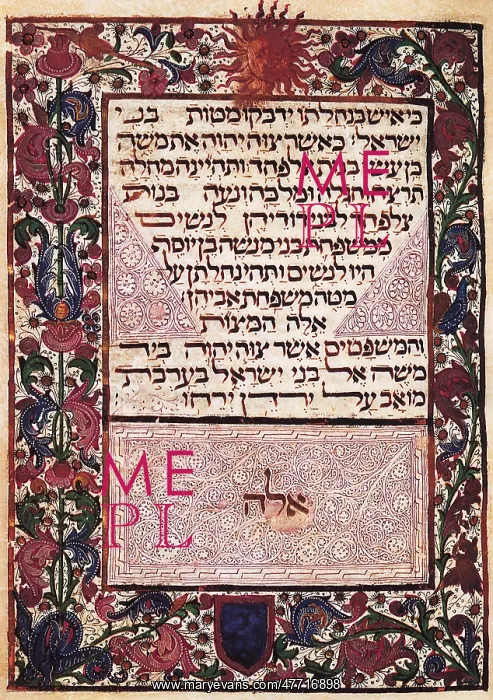 כי איש בנחלתו ידבקו מטות בני
ישראל כאשר צוה יהוה את משה
כן עשו בנות צלפחד ותהיינה מחלה
תרצה וחגלה ומלכה ונעה בנות
צלפחד לבני דדיהן לנשים
ממשפחת בני מנשה בן יוסף
היו לנשים ותהי נחלתן על
מטה משפחת אביהן
אלה המצות
והמשפטים אשר צוה יהוה ביד
משה אל בני ישראל בערבת
מואב על ירדן ירחו
אלה
ME
PL
ME
PL
www.maryevans.com/47716898